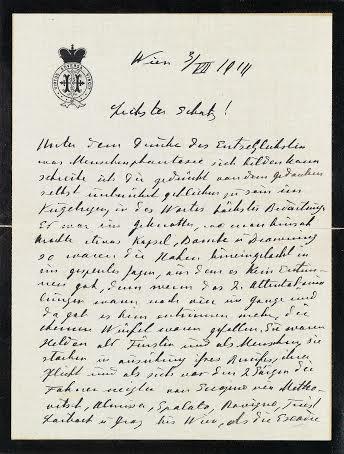 Wien 3/VII 1914
Liebster Schatz!
Unter dem Drucke des Entsetzlichsten
was Menschenphantasie sich bilden kann
schreibe ich Dir gedrückt von dem Gedanken
selbst untröstlich geblieben zu sein im
Kugelregen, in des Wortes höchster Bedeutung.
Es war ein, wo man hinsah
etwas Kapsel, Bombe u Browning
so waren die Hohen hineingelockt in
ein Jagen, aus dem es kein Entrin-
nen gab, denn wenn das 2. Attentat
waren noch vier im Gange und
da gab es kein entrinnen mehr, die
eisernen Würfel waren gefallen. Sie waren
Helden als Fürsten und als Menschen, sie
starben in ausübung ihres Berufes, ihrer
Pflicht und als sich vor den 2 Särgen die
Fahnen neigten von Sarajevo via Metko-
vitsch, Almissa, Spalato, Rovigno, Triest
Laibach u Graz bis Wien, als die Escadre